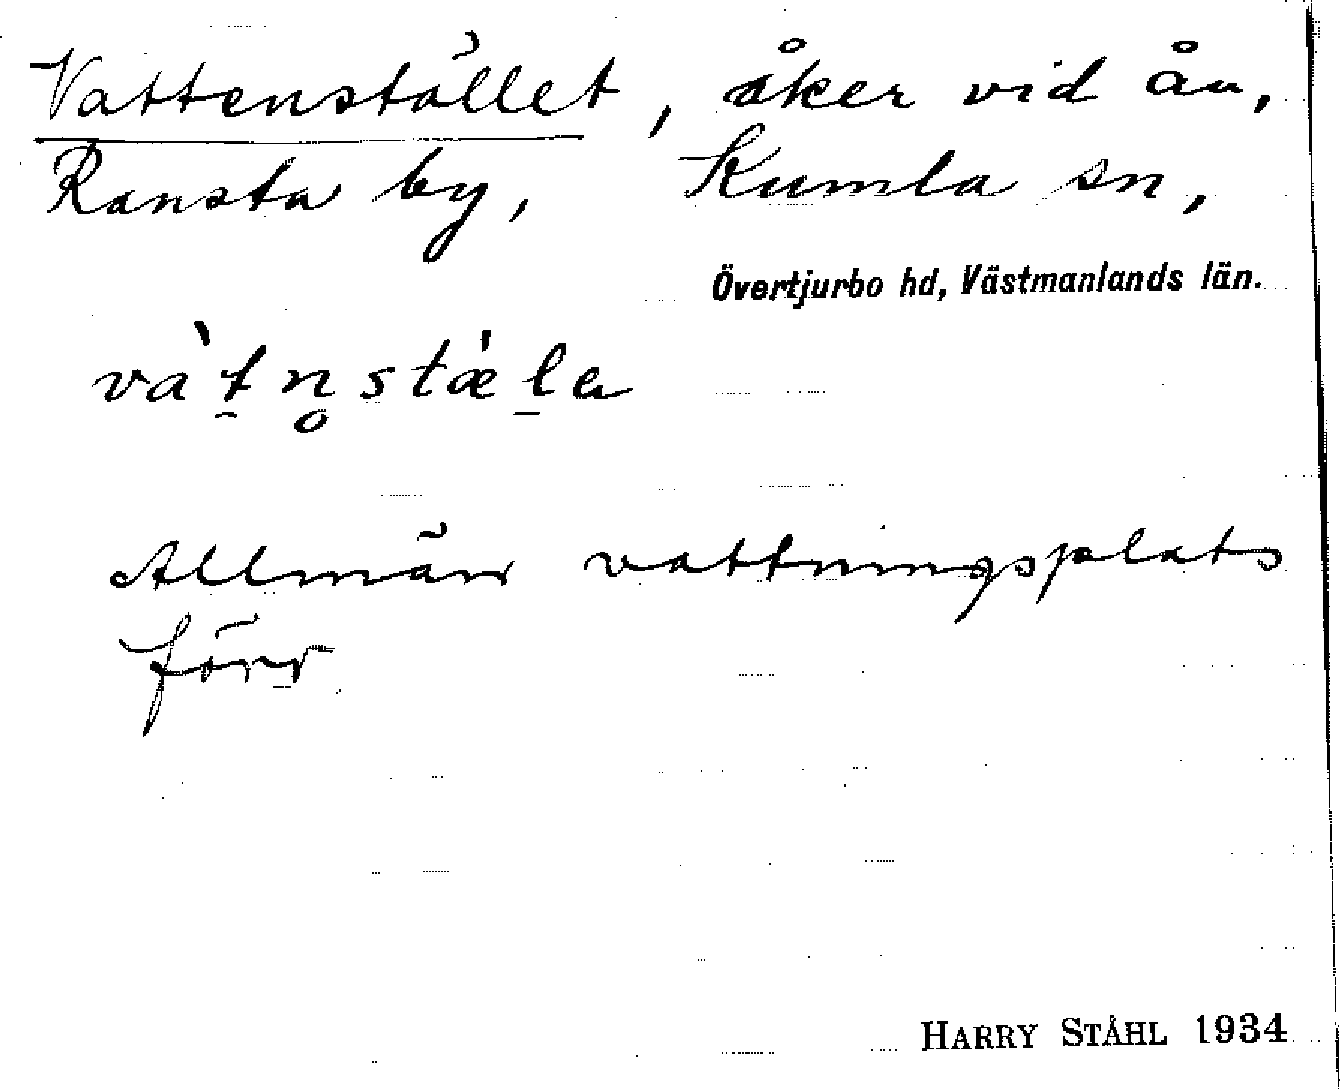 Vattenstället, åker vid ån,
Ransta by, Kumla sn,
Övertjurbo hd, Västmanlands län.
và̀t̠n̥stæ̀l̠a
Allmän vattningsplats
förr
HARRY STÅHL 1934